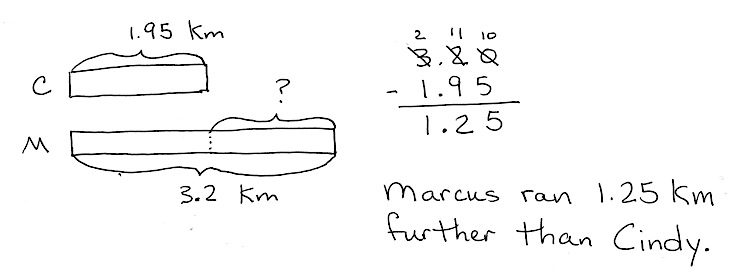 1.95 Km
C
?
M
3.2 Km
2 11 10
3.20
- 1.95
1.25
Marcus ran 1.25 Km
further than Cindy.